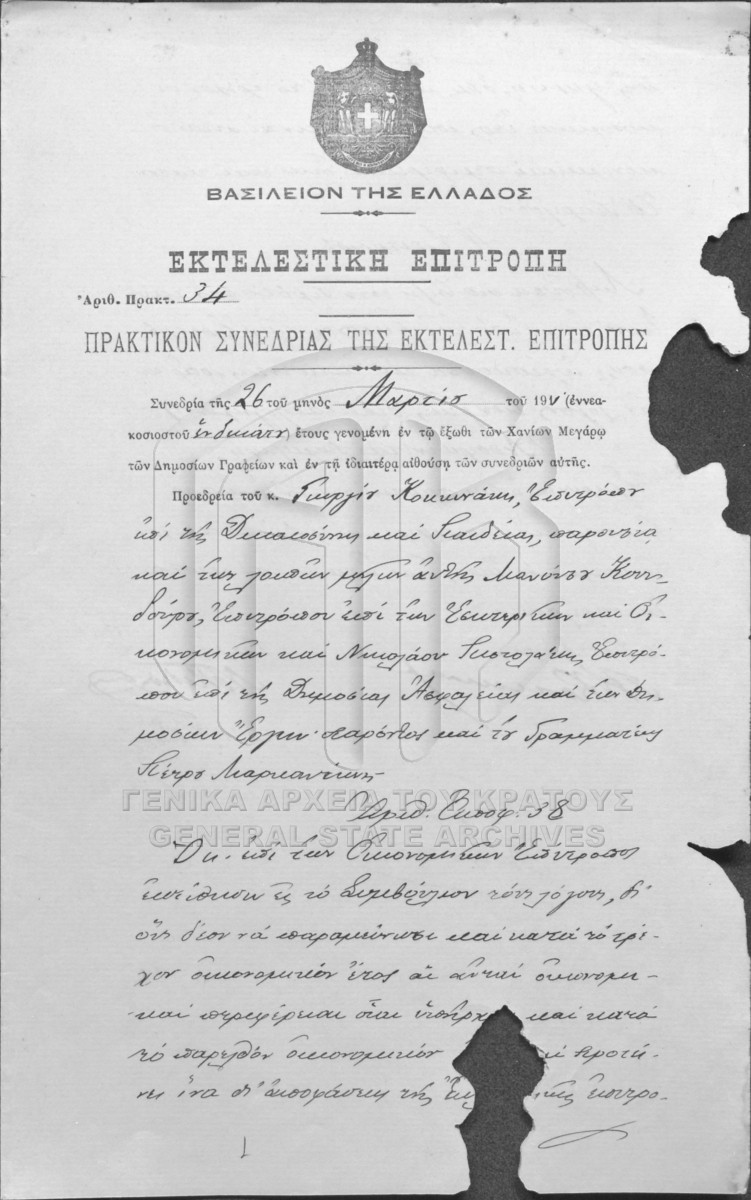 ΒΑΣΙΛΕΙΟΝ ΤΗΣ ΕΛΛΑΔΟΣ
ΕΚΤΕΛΕΣΤΙΚΗ ΕΠΙΤΡΟΠΗ
Ἀριθ. Πρακτ. 34
ΠΡΑΚΤΙΚΟΝ ΣΥΝΕΔΡΙΑΣ ΤΗΣ ΕΚΤΕΛΕΣΤ. ΕΠΙΤΡΟΠΗΣ
Συνεδρία τῆς 26 τοῦ μηνὸς Μαρτίου τοῦ 191 (ἐννεα-
κοσιοστοῦ ἑνδεκάτου) ἔτους γενομένη ἐν τῷ ἔξωθι τῶν Χανίων Μεγάρῳ
τῶν Δημοσίων Γραφείων καὶ ἐν τῇ ἰδιαιτέρᾳ αἰθούσῃ τῶν συνεδριῶν αὐτῆς.
Προεδρεία τοῦ κ. Γεωργίου Κοκκινάκη, Ἐπιτρόπου
ἐπὶ τῆς Δικαιοσύνης καὶ Παιδείας, παρουσίᾳ
καὶ τῶν λοιπῶν μελῶν αὐτῆς Μανούσου Κουν-
δούρου, Ἐπιτρόπου ἐπὶ τῶν Ἐσωτερικῶν καὶ Οἰ-
κονομικῶν καὶ Νικολάου Πιστολάκη Ἐπιτρό-
που ἐπὶ τῆς Δημοσίας Ἀσφαλείας καὶ τῶν Δη-
μοσίων Ἔργων· παρόντος καὶ τοῦ Γραμματέως
Πέτρου Μαρκαντώνη
ΓΕΝΙΚΑ ΑΡΧΕΙΑ ΤΟΥ ΚΡΑΤΟΥΣ
Ἀριθ. Ἀποφ. 38
GENERAL STATE ARCHIVES
Ὁ κ. ἐπὶ τῶν Οἰκονομικῶν Ἐπίτροπος
ἐκτίθησιν εἰς τὸ Συμβούλιον τοὺς λόγους, δι'
οὓς δέον νὰ παραμείνωσι καὶ κατὰ τὸ τρέ-
χον οἰκονομικὸν ἔτος αἱ αὐταὶ οἰκονομι-
καὶ περιφέρειαι οἷαι ὑπῆρχ καὶ κατὰ
τὸ παρελθὸν οἰκονομικὸν προτεί-
νει ἵνα δι' ἀποφάσεως τῆς κῆς Ἐπιτρο-